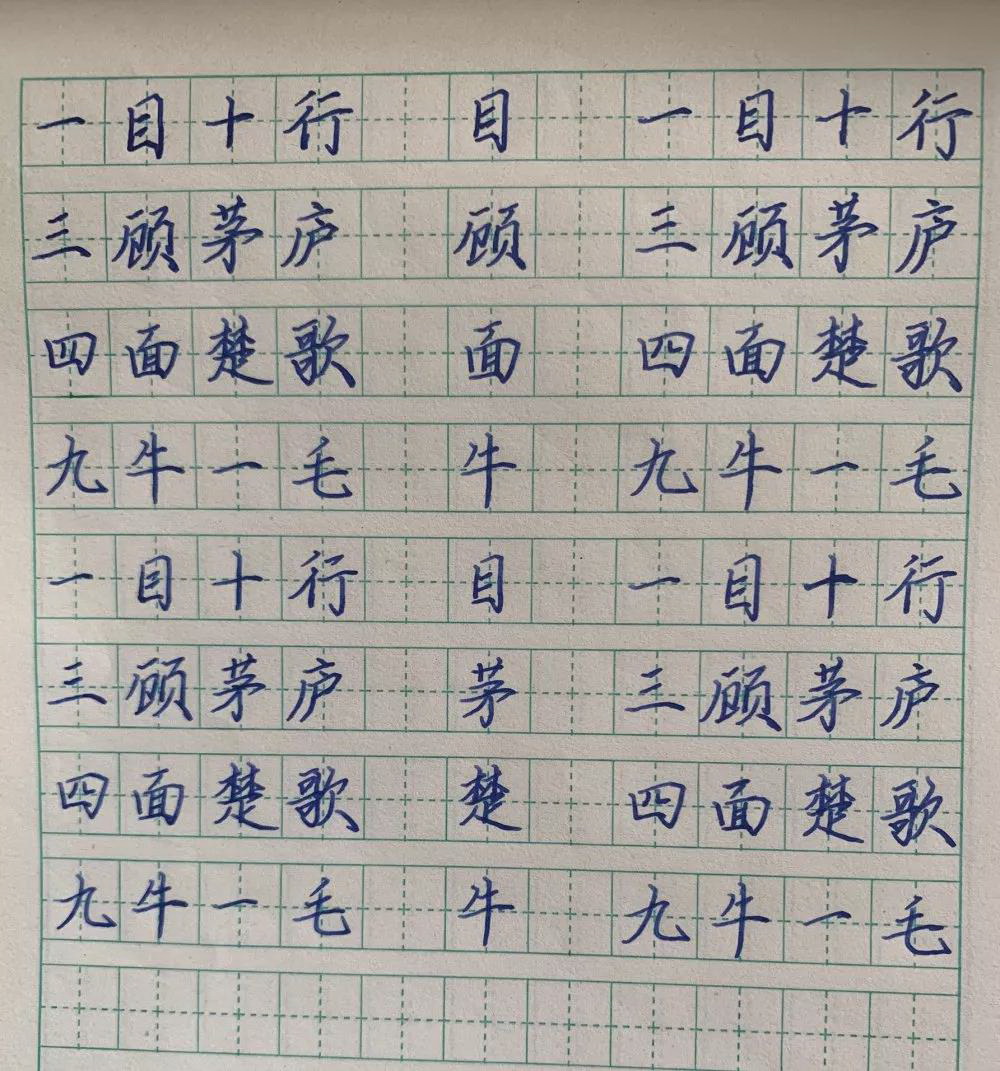 一目十行 目 一目十行
三顾茅庐 顾 三顾茅庐
四面楚歌 面 四面楚歌
九牛一毛 牛 九牛一毛
一目十行 目 一目十行
三顾茅庐 茅 三顾茅庐
四面楚歌 楚 四面楚歌
九牛一毛 牛 九牛一毛